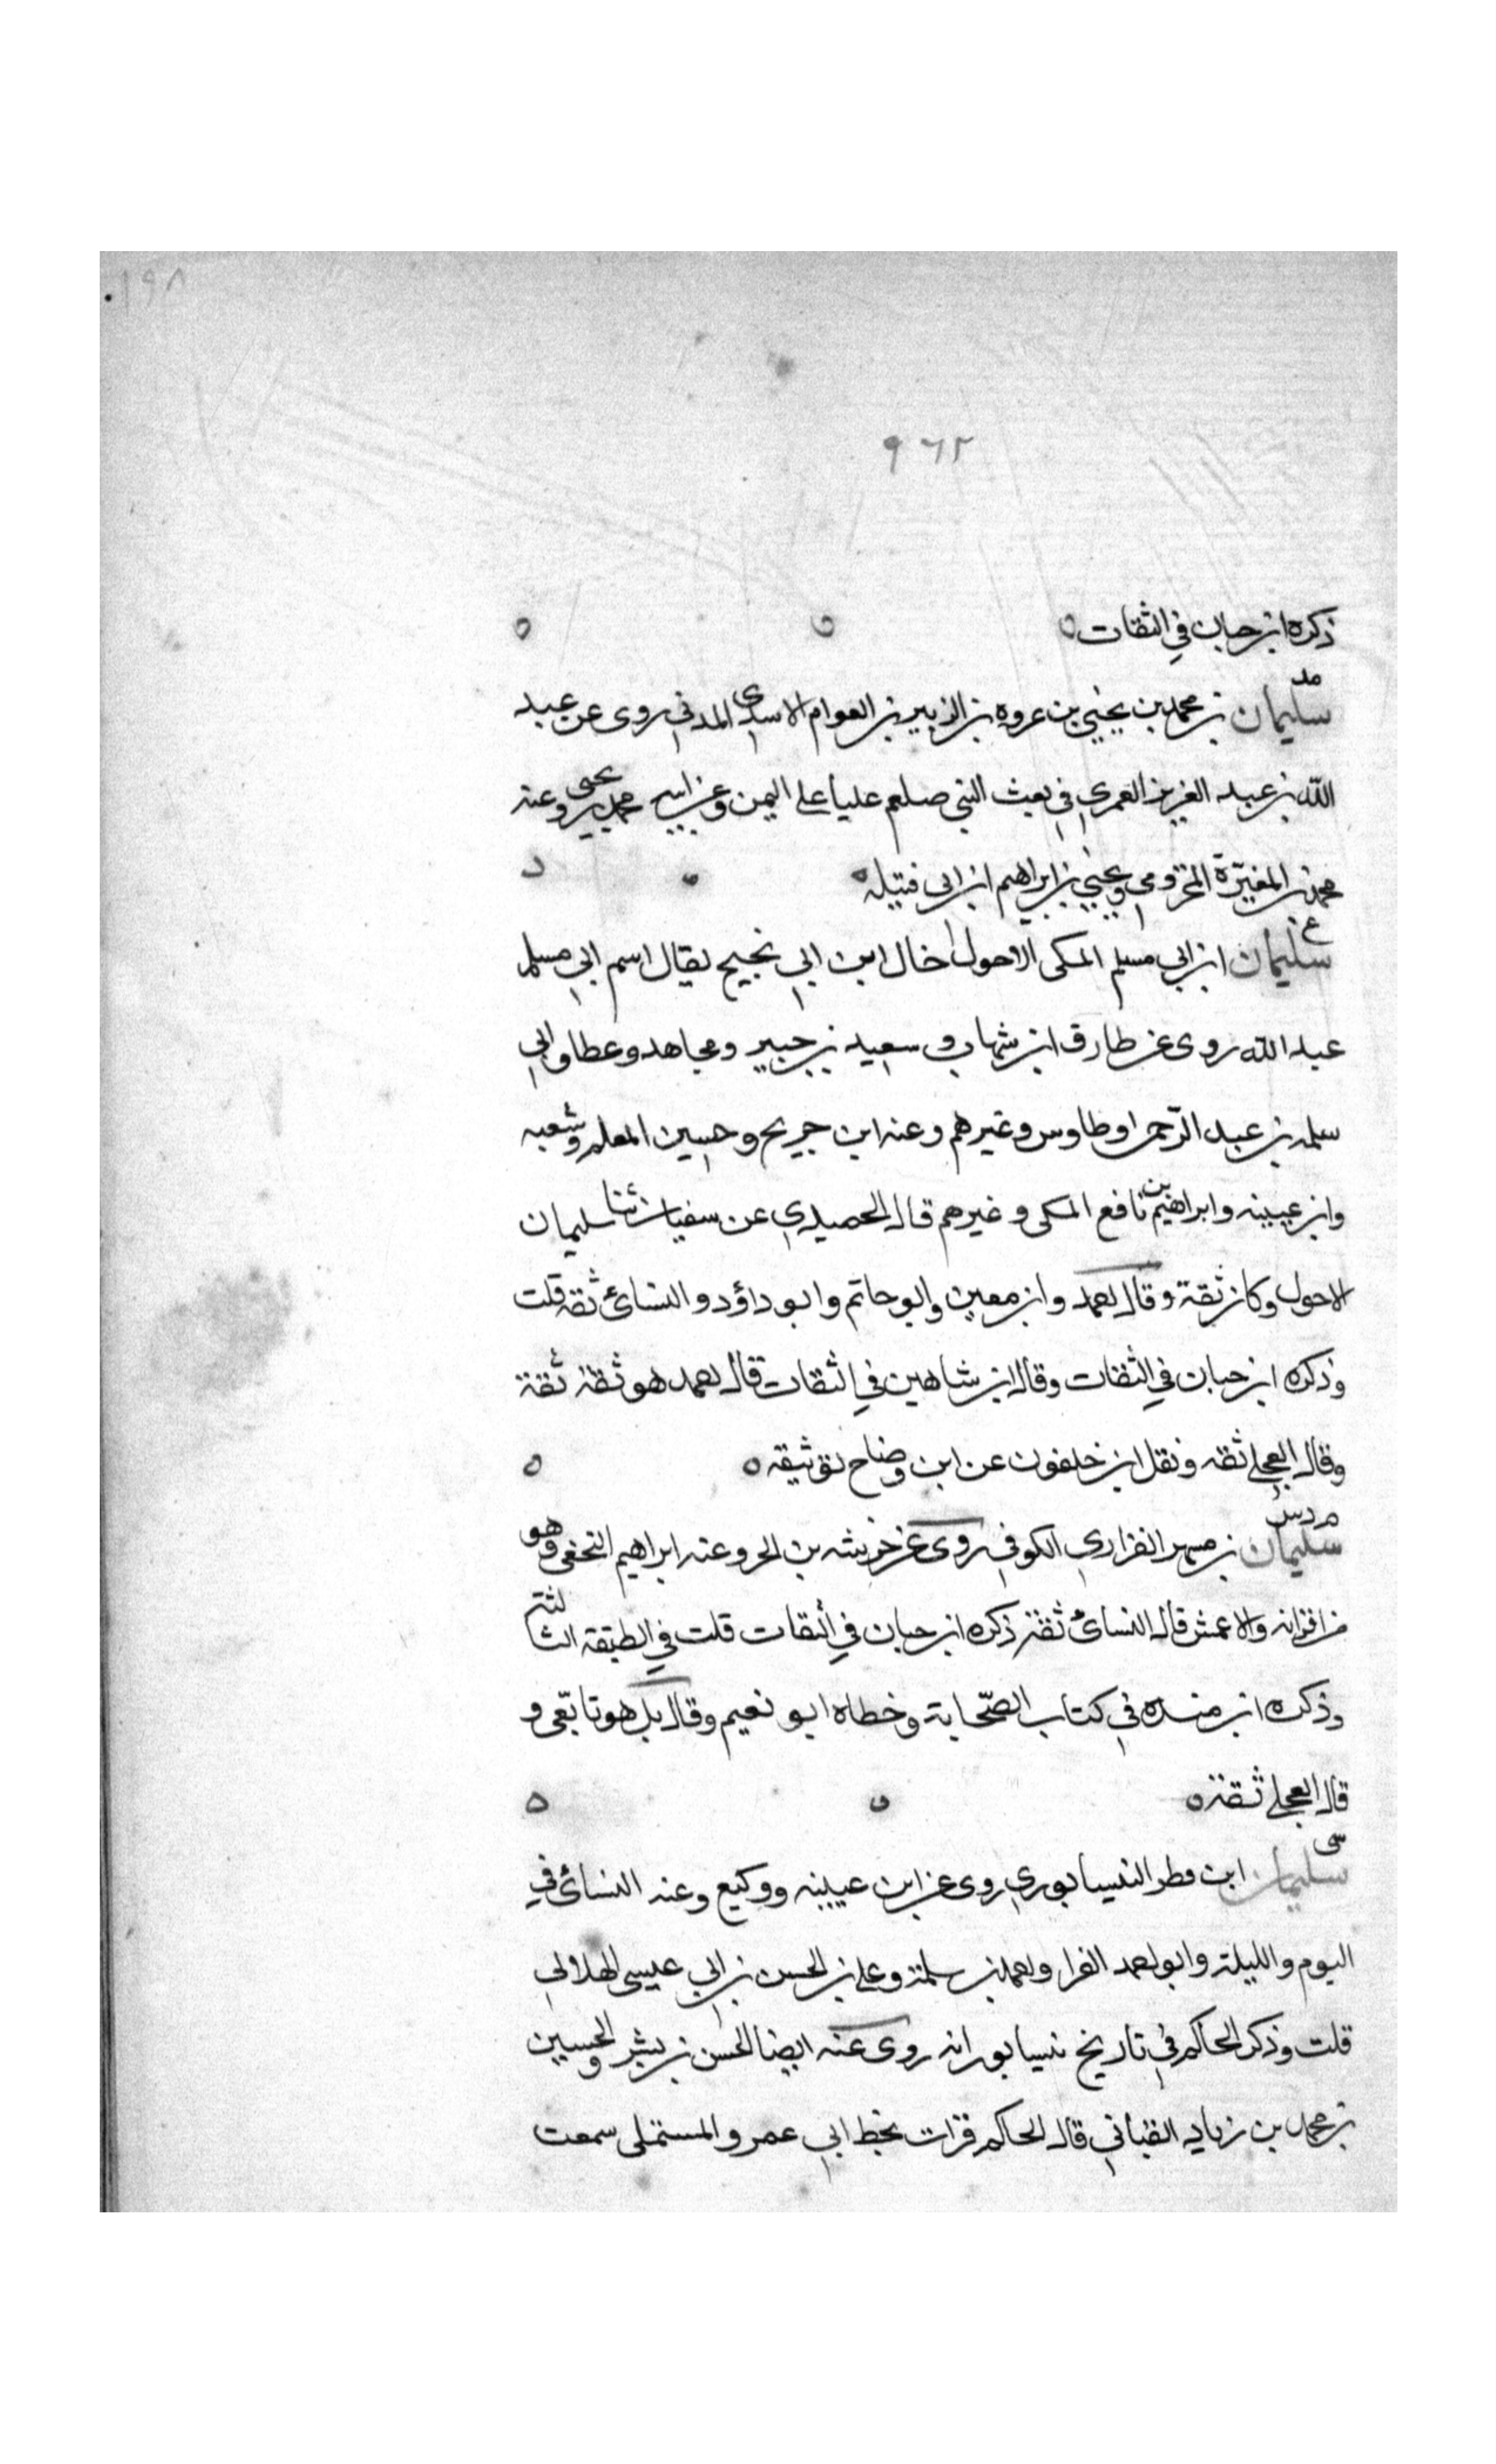 ١٩٨
٩٦٢
ذكره ابن حبان في الثقات ٥ ٥ ٥
مد
سليمان بن محمد بن يحيي بن عروه بن الزبير بن العوام الاسدي المدني روى عن عبد
الله بن عبد العزيز العمري في بعث النبي صلعم عليا على اليمن وعن ابيه محمد بن يحيى وعنه
محمد بن المغيرة المخزومي ويحيي بن ابراهيم ابن ابي قتيله ٥
ع
سليمان ابن ابي مسلم المكى الاحول خال ابن ابي نجيح يقال اسم ابي مسلم
عبد الله روى عن طارق ابن شهاب و سعيد بن جبير ومجاهد وعطا وابي
سلمه بن عبد الرحمن وطاوس وغيرهم وعنه ابن جريج وحسين المعلم وشعبه
وابن عيينه وابراهيم بن نافع المكى وغيرهم قال الحميدي عن سفيان ثنا سليمان
الاحول وكان ثقة وقال احمد وابن معين وابو حاتم وابو داؤد والنسائ ثقه قلت
وذكره ابن حبان في الثقات وقال ابن شاهين في الثقات قال احمد هو ثقة ثقة
وقال العجلي ثقه ونقل ابن خلفون عن ابن وضاح توثيقه ٥ ٥
م د س
سليمان بن مسهر الفزاري الكوفي روى عن خرشه بن الحر وعنه ابراهيم النخعى وهو
من اقرانه والاعمش قال النسائ ثقة ذكره ابن حبان في الثقات قلت في الطبقه الثالثة
وذكره ابن منده في كتاب الصحابة وخطاه ابو نعيم وقال بل هو تابعى و
قال العجلي ثقة ٥ ٥ ٥
سى
سليمان ابن مطر النيسابوري روى عن ابن عيينه ووكيع وعنه النسائ في
اليوم والليلة وابو احمد الفرا واحمد بن سلمة وعلي بن الحسن بن ابي عيسى الهلالي
قلت وذكر الحاكم في تاريخ نيسابور انه روى عنه ايضا الحسن بن بشر والحسين
بن محمد بن زياد القباني قال الحاكم قرات بخط ابي عمرو المستملى سمعت